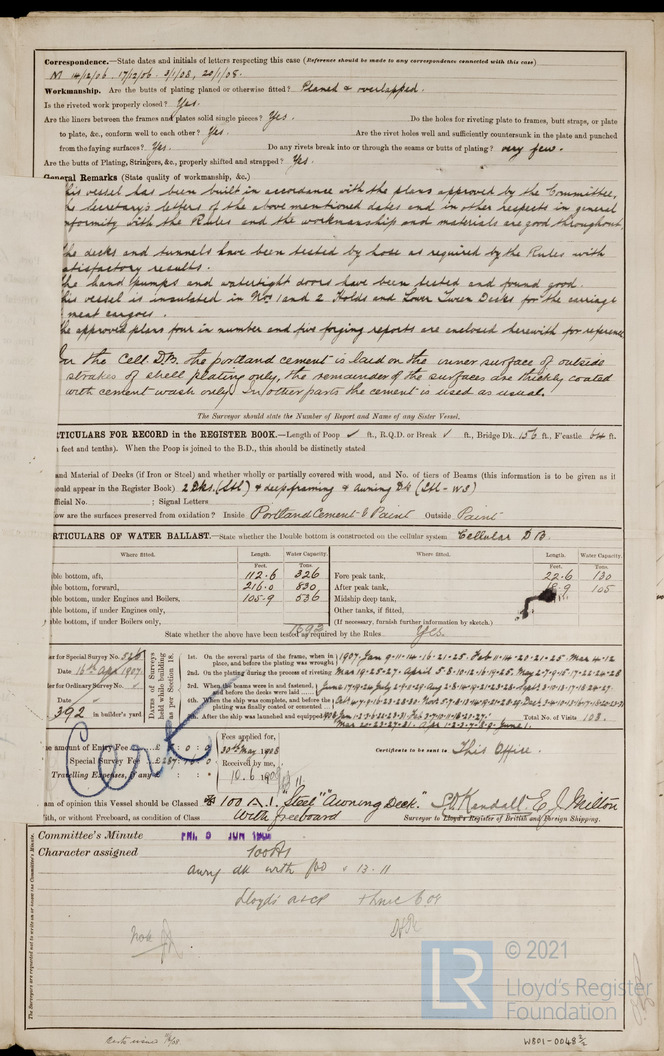 Correspondence.—State dates and initials of letters respecting this case (Reference should be made to any correspondence connected with this case)
M 14/12/06. 17/12/06. 3/1/08, 20/1/08.
Workmanship. Are the butts of plating planed or otherwise fitted? Planed & overlapped.
Is the riveted work properly closed? Yes.
Are the liners between the frames and plates solid single pieces? Yes. Do the holes for riveting plate to frames, butt straps, or plate
to plate, &c., conform well to each other? Yes. Are the rivet holes well and sufficiently countersunk in the plate and punched
from the faying surfaces? Yes. Do any rivets break into or through the seams or butts of plating? very few.
Are the butts of Plating, Stringers, &c., properly shifted and strapped? Yes.
General Remarks (State quality of workmanship, &c.)
his vessel has been built in accordance with the plans approved by the Committee,
he Secretary's letters of the above mentioned dates and in other respects in general
nformity with the Rules and the workmanship and materials are good throughout.
he decks and tunnels have been tested by hose as required by the Rules with
atisfactory results.
he hand pumps and watertight doors have been tested and found good.
his vessel is insulated in Nos 1 and 2 Holds and Lower Tween Decks for the carriage
meat cargoes.
he approved plans four in number and five forging reports are enclosed herewith for reference
In the Cell. D.B. the portland cement is laid on the inner surface of outside
strakes of shell plating only, the remainder of the surfaces are thickly coated
with cement wash only. In other parts the cement is used as usual.
The Surveyor should state the Number of Report and Name of any Sister Vessel.
RTICULARS FOR RECORD in the REGISTER BOOK.—Length of Poop ✓ ft., R.Q.D. or Break ✓ ft., Bridge Dk. 156 ft., F'castle 64 ft.
n feet and tenths). When the Poop is joined to the B.D., this should be distinctly stated
and Material of Decks (if Iron or Steel) and whether wholly or partially covered with wood, and No. of tiers of Beams (this information is to be given as it
ould appear in the Register Book) 2 Dks. (Stl) & deepframing & Awning Dk (Stl - WS)
fficial No. ; Signal Letters
ow are the surfaces preserved from oxidation? Inside Portland Cement & Paint Outside Paint
RTICULARS OF WATER BALLAST.—State whether the Double bottom is constructed on the cellular system Cellular D B.
Where fitted. Length. Water Capacity. Where fitted. Length. Water Capacity.
Feet. Tons. Feet. Tons.
ble bottom, aft, 112.6 326 Fore peak tank, 22.6 130
ble bottom, forward, 216.0 830 After peak tank, 18.9 105
ble bottom, under Engines and Boilers, 105.9 536 Midship deep tank,
ble bottom, if under Engines only, Other tanks, if fitted,
ble bottom, if under Boilers only, (If necessary, furnish further information by sketch.)
1692
State whether the above have been tested as required by the Rules Yes.
er for Special Survey No. 526
Date 16th Apr 1907
er for Ordinary Survey No.
Date
392 in builder's yard
Dates of Surveys held while building as per Section 18.
1st. On the several parts of the frame, when in place, and before the plating was wrought
1907 Jan 9-11-14-16-21-25. Feb 11-14-20-21-25. Mar 4-12
2nd. On the plating during the process of riveting
3rd. When the beams were in and fastened, and before the decks were laid
4th. When the ship was complete, and before the plating was finally coated or cemented
5th. After the ship was launched and equipped
Total No. of Visits 103.
Cert
e amount of Entry Fee £ 5 : 0 : 0
Special Survey Fee £ 287 :
Travelling Expenses, if any £ :
Fees applied for,
30th May 1908
Received by me,
10.6.1908
Certificates to be sent to This Office.
am of opinion this Vessel should be Classed 100 A.1. "Steel" "Awning Deck."
ith, or without Freeboard, as condition of Class With freeboard
E. J. Milton
Surveyor to Lloyd's Register of British and Foreign Shipping.
Committee's Minute FRI. 5 JUN 1908
Character assigned 100A1
awng dk with fbd
Lloyd's a&cp
The Surveyors are requested not to write on or below the Committee's Minute.
W801-0048 2/2
LR
© 2021
Lloyd's Register
Foundation